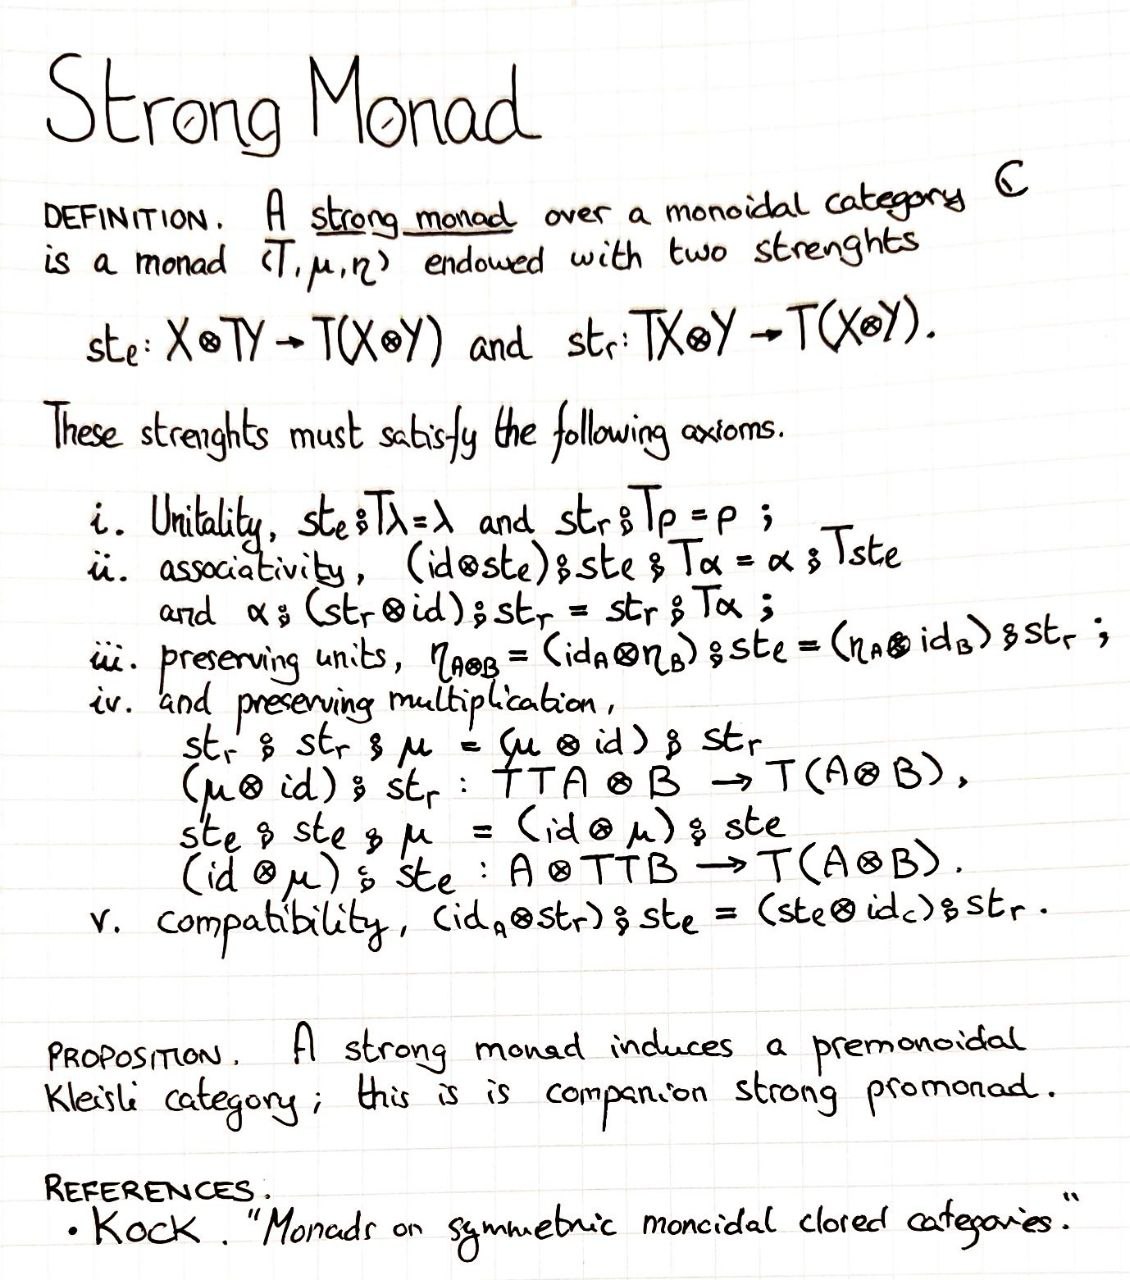 Strong Monad
DEFINITION. A strong monad over a monoidal category ℂ
is a monad (T, μ, η) endowed with two strenghts
stₑ: X⊗TY → T(X⊗Y) and stᵣ: TX⊗Y → T(X⊗Y).
These strenghts must satisfy the following axioms.
i. Unitality, stₑ⨾Tλ=λ and stᵣ⨾Tρ=ρ ;
ii. associativity, (id⊗stₑ)⨾stₑ⨾Tα = α⨾Tstₑ
and α⨾(stᵣ⊗id)⨾stᵣ = stᵣ⨾Tα ;
iii. preserving units, η_A⊗B = (id_A⊗η_B)⨾stₑ = (η_A⊗id_B)⨾stᵣ ;
iv. and preserving multiplication,
stᵣ ⨾ stᵣ ⨾ μ = (μ ⊗ id) ⨾ stᵣ
(μ⊗ id) ⨾ stᵣ : TTA ⊗ B → T(A⊗B),
stₑ ⨾ stₑ ⨾ μ = (id ⊗ μ) ⨾ stₑ
(id ⊗ μ) ⨾ stₑ : A ⊗ TTB → T(A⊗B).
v. compatibility, (id_A⊗stᵣ)⨾stₑ = (stₑ⊗id_C)⨾stᵣ.
PROPOSITION. A strong monad induces a premonoidal
Kleisli category; this is is companion strong promonad.
REFERENCES.
• Kock. "Monads on symmetric monoidal closed categories."